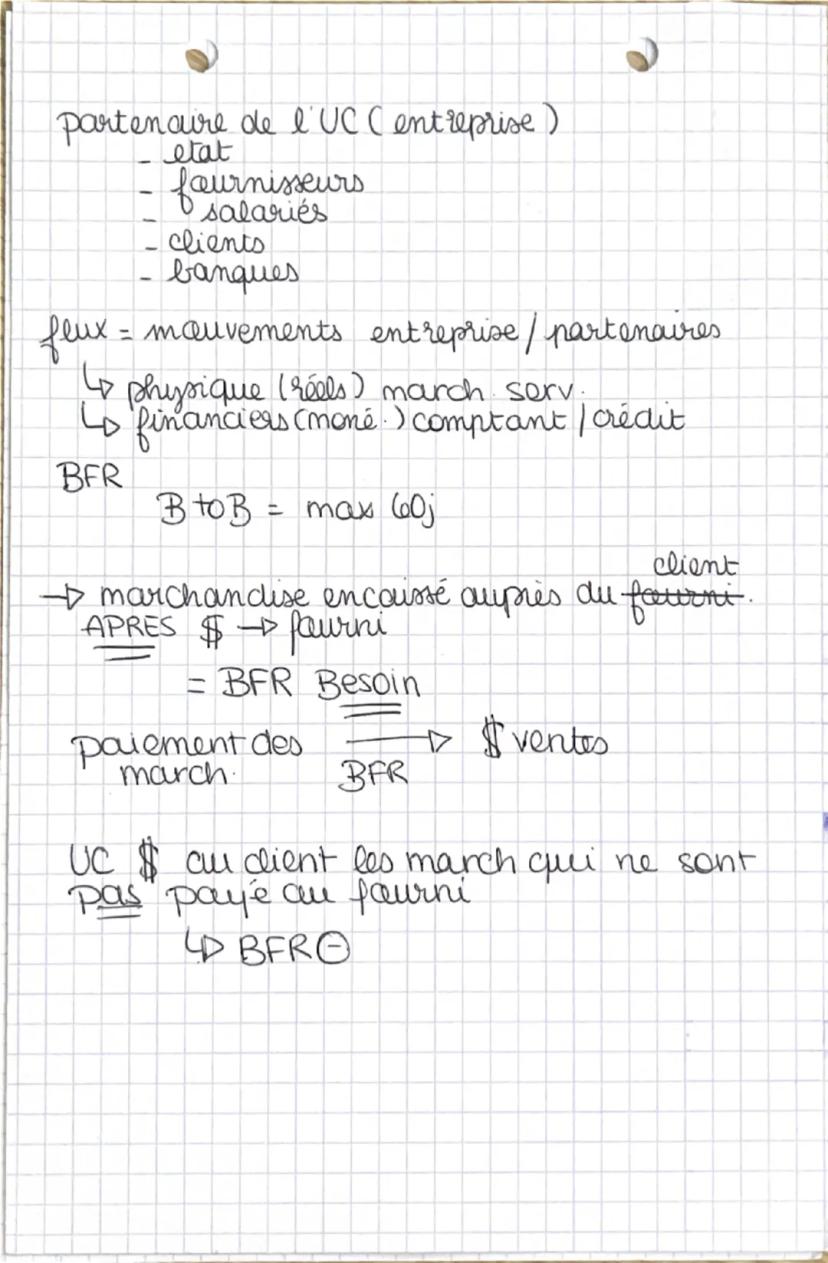 partenaire de l'UC (entreprise)
- etat
- fournisseurs
- salariés
- clients
- banques
flux = mouvements entreprise / partenaires
↳ physique (réels) march. serv.
↳ financiers (moné.) comptant / crédit
BFR
B to B = max 60j
client
→ marchandise encaissé auprès du fourni.
APRES $ → fourni
= BFR Besoin
paiement des → $ ventes
march. BFR
UC $ au client les march qui ne sont
pas payé au fourni
↳ BFR ⊖